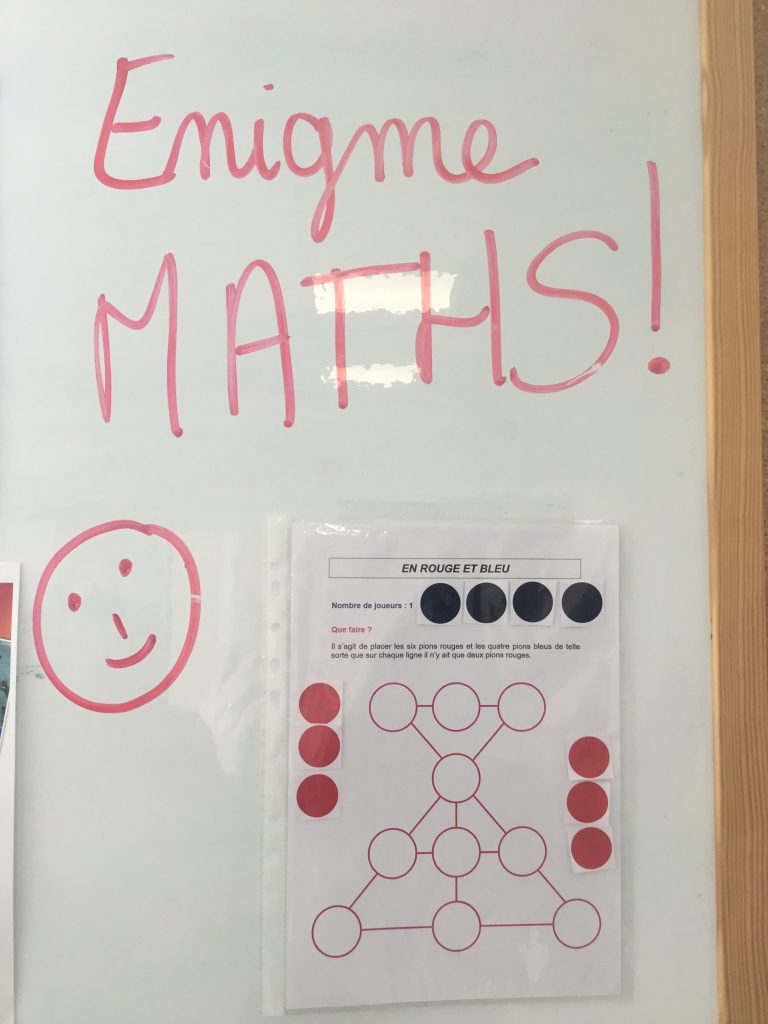 Enigme
MATHS!
EN ROUGE ET BLEU
Nombre de joueurs : 1
Que faire ?
Il s'agit de placer les six pions rouges et les quatre pions bleus de telle
sorte que sur chaque ligne il n'y ait que deux pions rouges.